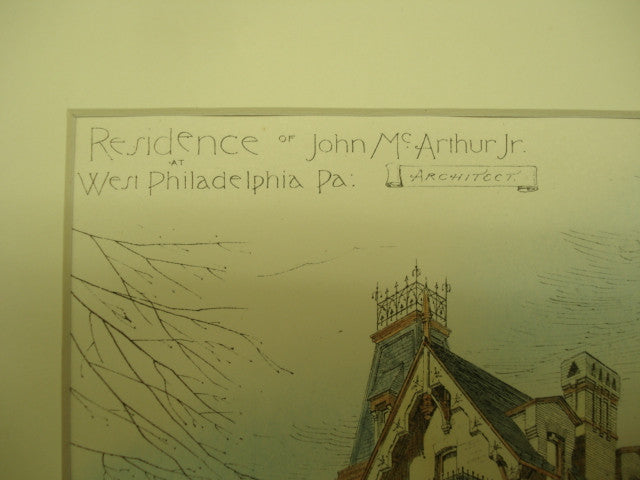 Residence OF John Mc. Arthur Jr.
AT
West Philadelphia Pa:
ARCHITECT.